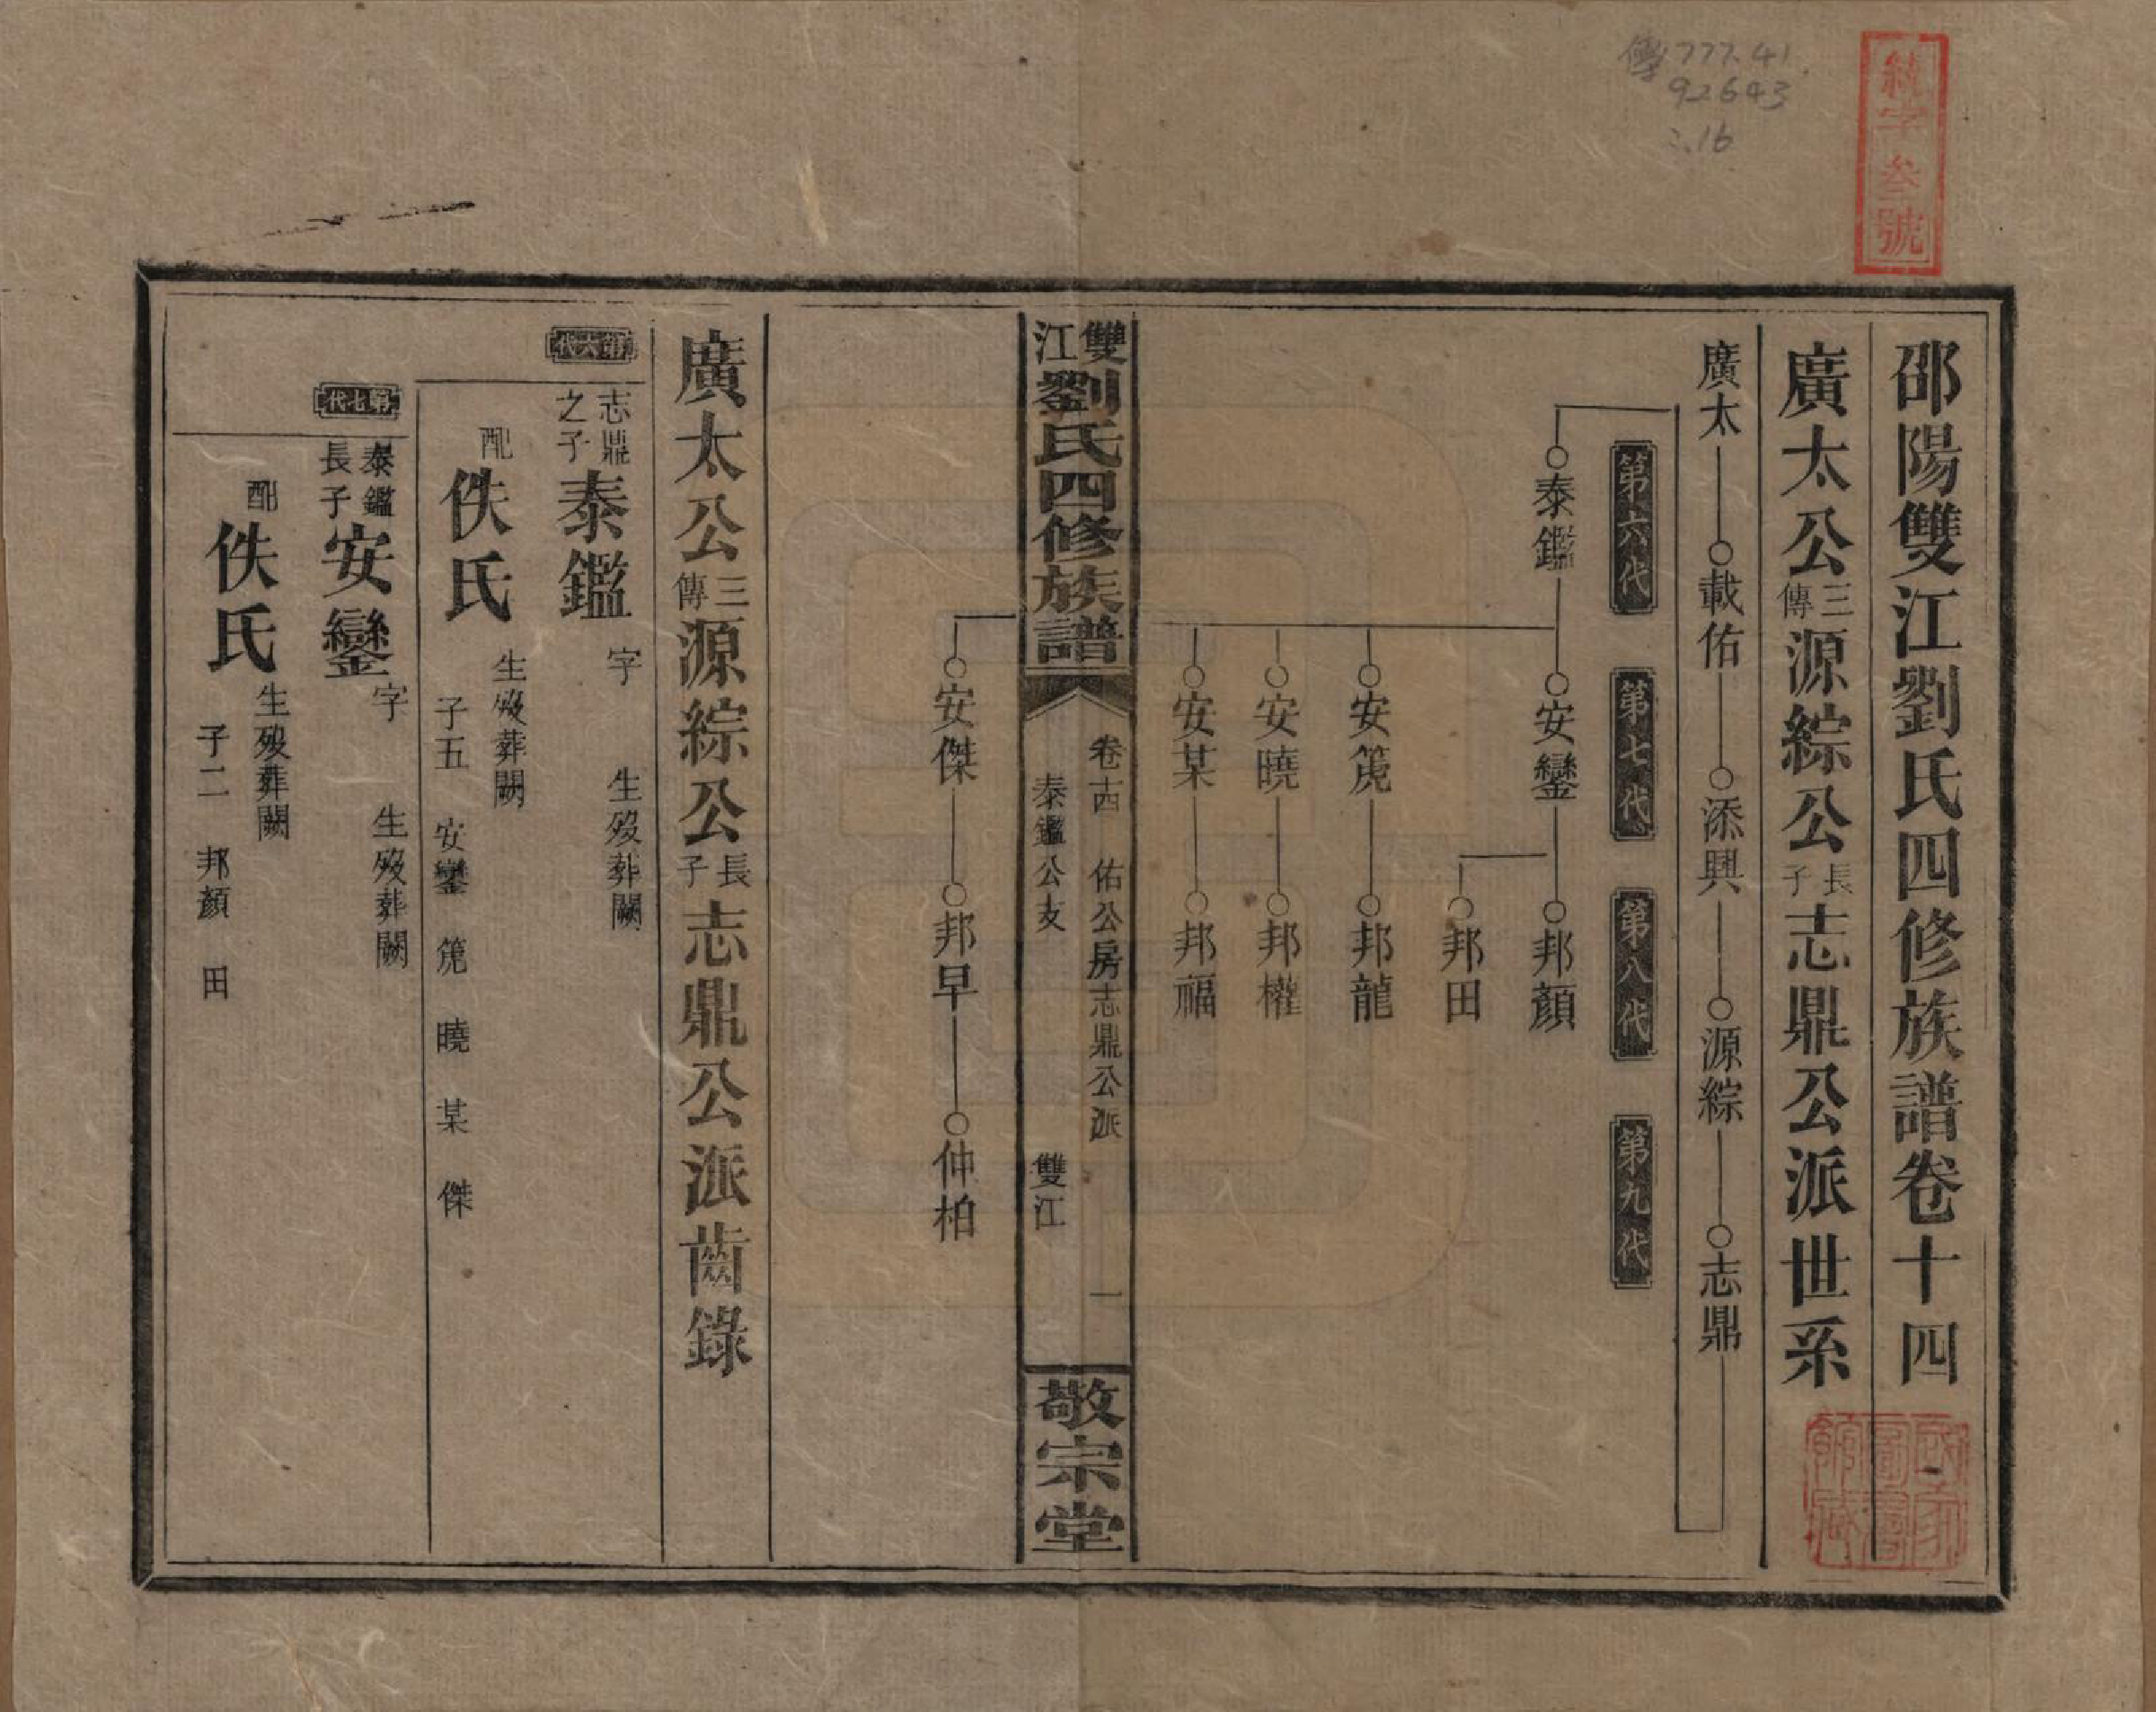 傳777.41
92643
:.16
叁號
邵陽雙江劉氏四修族譜卷十四
廣太公三傳源綜公長子志鼎公派世系
廣太 載佑 添興 源綜 志鼎
第六代 第七代 第八代 第九代
泰鑑 安鑾 邦顏
邦田
安篪 邦龍
安曉 邦權
安某 邦福
雙江劉氏四修族譜
卷十四 佑公房志鼎公派 一
泰鑑公支 雙江
敬宗堂
安傑 邦早 仲柏
廣太公三傳源綜公長子志鼎公派齒錄
第六代
志鼎之子泰鑑 字 生歿葬闕
配佚氏 生歿葬闕
子五 安鑾 篪 曉 某 傑
第七代
泰鑑長子安鑾 字 生歿葬闕
配佚氏 生歿葬闕
子二 邦顏 田